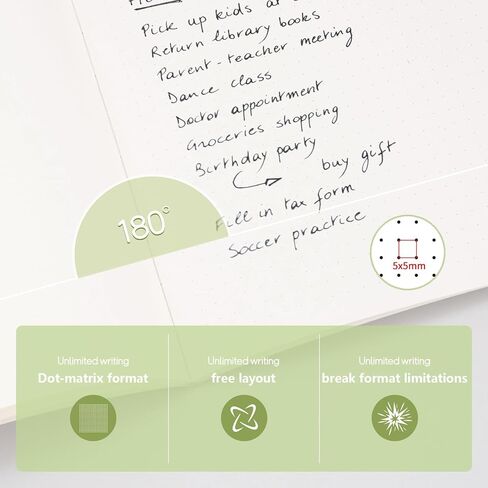 Pick up kids at
Return library books
Parent-teacher meeting
Dance class
Doctor appointment
Groceries shopping
Birthday party
buy gift
Fill in tax form
Soccer practice
180°
5x5mm
Unlimited writing
Dot-matrix format
Unlimited writing
free layout
Unlimited writing
break format limitations